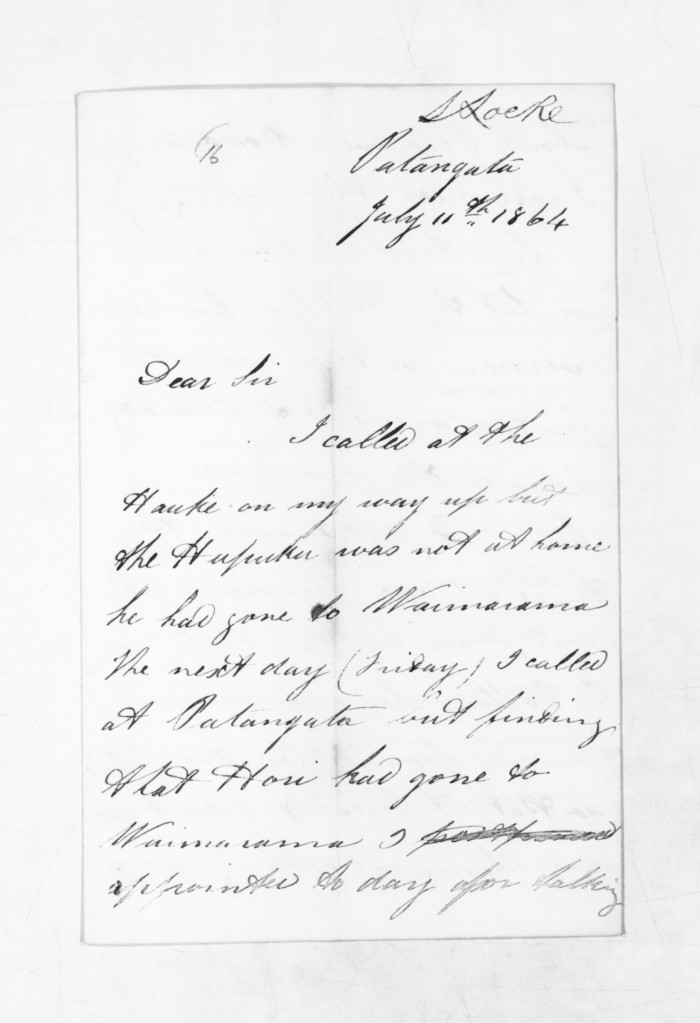 S Locke
16
Patangata
July 11th 1864
Dear Sir
I called at the
Hauke on my way up but
the Hapuku was not at home
he had gone to Waimarama
The next day (Friday) I called
at Patangata but finding
that Hori had gone to
Waimarama I postponed
appointed to day for talking